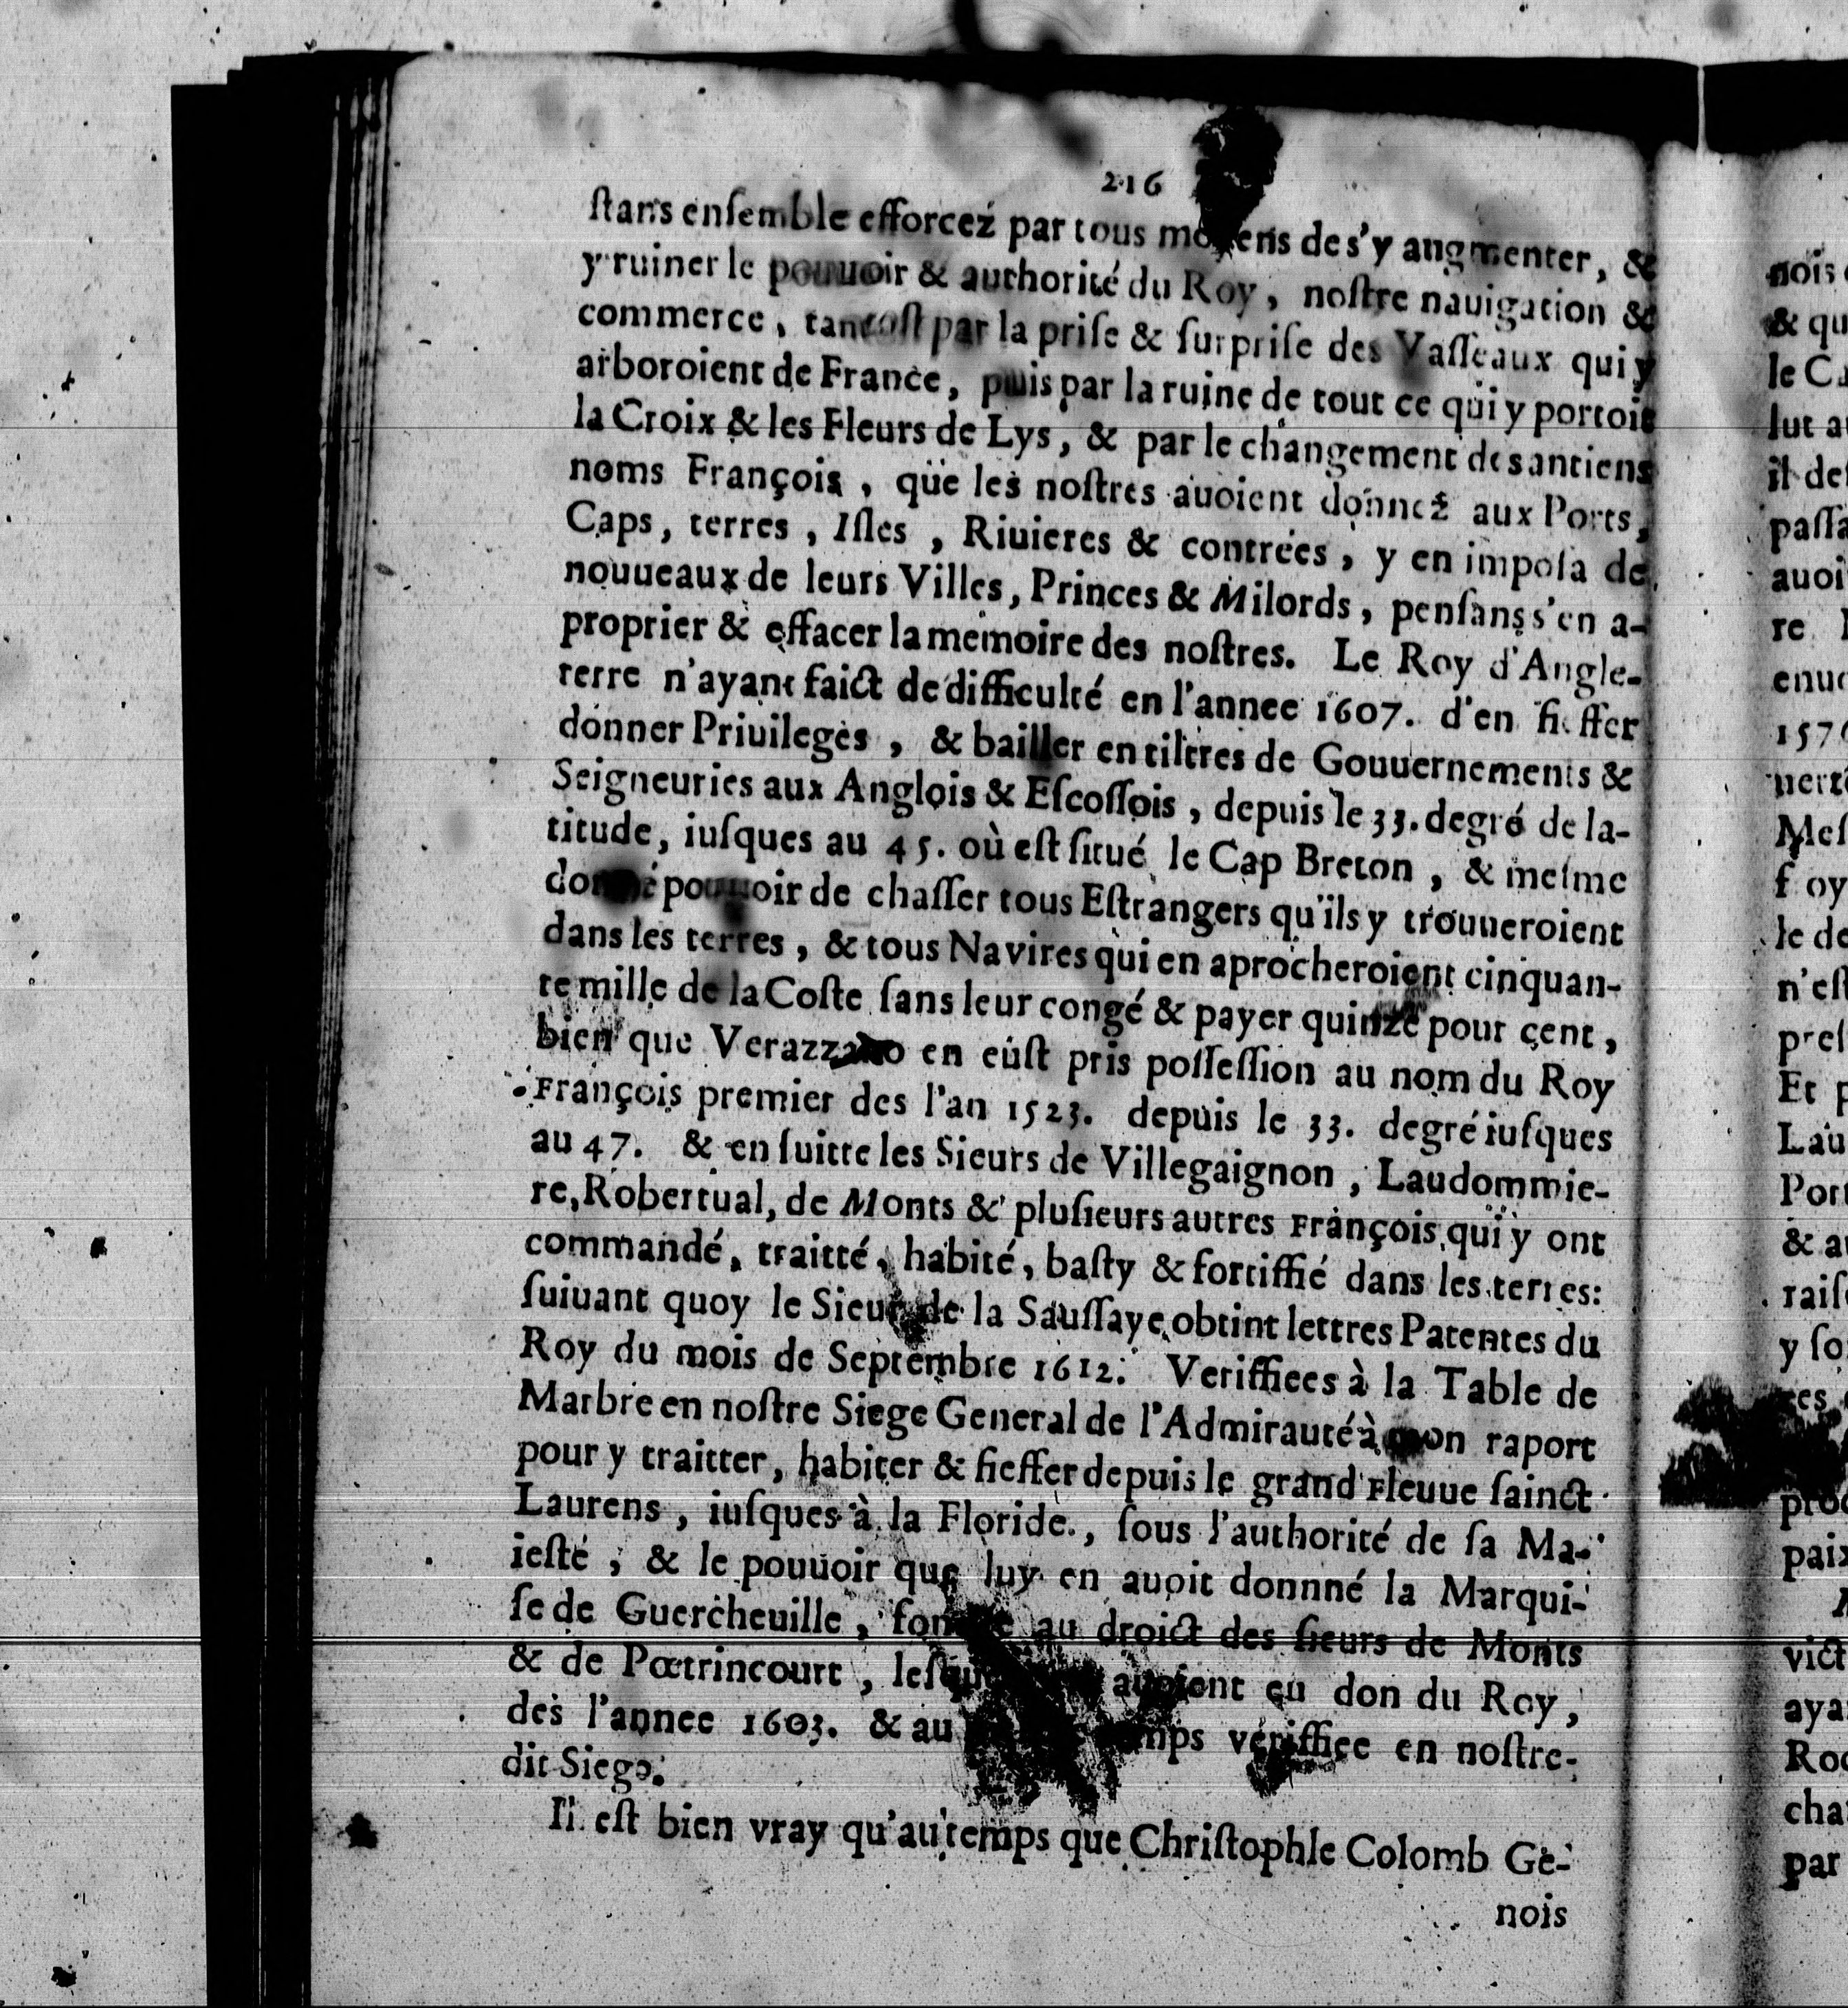 216
ſtans enſemble efforcez par tous moyens de s'y augmenter, &
y ruiner le pouuoir & authorité du Roy, noſtre nauigation &
commerce, tantoſt par la priſe & ſurpriſe des Vaſſeaux qui y
arboroient de France, puis par la ruine de tout ce qui y portoit
la Croix & les Fleurs de Lys, & par le changement des antiens
noms François, que les noſtres auoient donnez aux Ports,
Caps, terres, Iſles, Riuieres & contrées, y en impoſa de
nouueaux de leurs Villes, Princes & Milords, penſans s'en a-
proprier & effacer la memoire des noſtres. Le Roy d'Angle-
terre n'ayant faict de difficulté en l'annee 1607. d'en fieffer
donner Priuileges, & bailler en tiltres de Gouuernements &
Seigneuries aux Anglois & Eſcoſſois, depuis le 33. degré de la-
titude, iuſques au 45. où eſt ſitué le Cap Breton, & meſme
donné pouuoir de chaſſer tous Eſtrangers qu'ils y trouueroient
dans les terres, & tous Navires qui en aprocheroient cinquan-
te mille de la Coſte ſans leur congé & payer quinze pour cent,
bien que Verazzano en eûſt pris poſſeſſion au nom du Roy
François premier des l'an 1523. depuis le 33. degré iuſques
au 47. & en ſuitte les Sieurs de Villegaignon, Laudommie-
re, Robertual, de Monts & pluſieurs autres François qui y ont
commandé, traitté, habité, baſty & fortiffié dans les terres:
ſuiuant quoy le Sieur de la Sauſſaye obtint lettres Patentes du
Roy du mois de Septembre 1612. Veriffiees à la Table de
Marbre en noſtre Siege General de l'Admirauté à mon raport
pour y traitter, habiter & fieffer depuis le grand Fleuue ſainct
Laurens, iuſques à la Floride, ſous l'authorité de ſa Ma-
ieſté, & le pouuoir que luy en auoit donnné la Marqui-
ſe de Guercheuille, au droict des ſieurs de Monts
& de Pœtrincourt, auoient eu don du Roy,
des l'annee 1603. & au temps veriffiee en noſtre-
dit Siege.
Il eſt bien vray qu'au temps que Chriſtophle Colomb Ge-
nois
nois
& qu
le Ca
lut au
il de
paſſa
auoi
re
enue
157
uert
Meſ
f oy
le de
n'eſt
preſ
Et p
Lau
Port
& au
raiſ
y ſo
res
proc
paix
vict
aya
Roc
cha
par